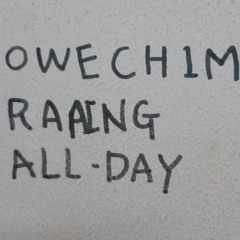 OWECH1M
RAAING
ALL-DAY